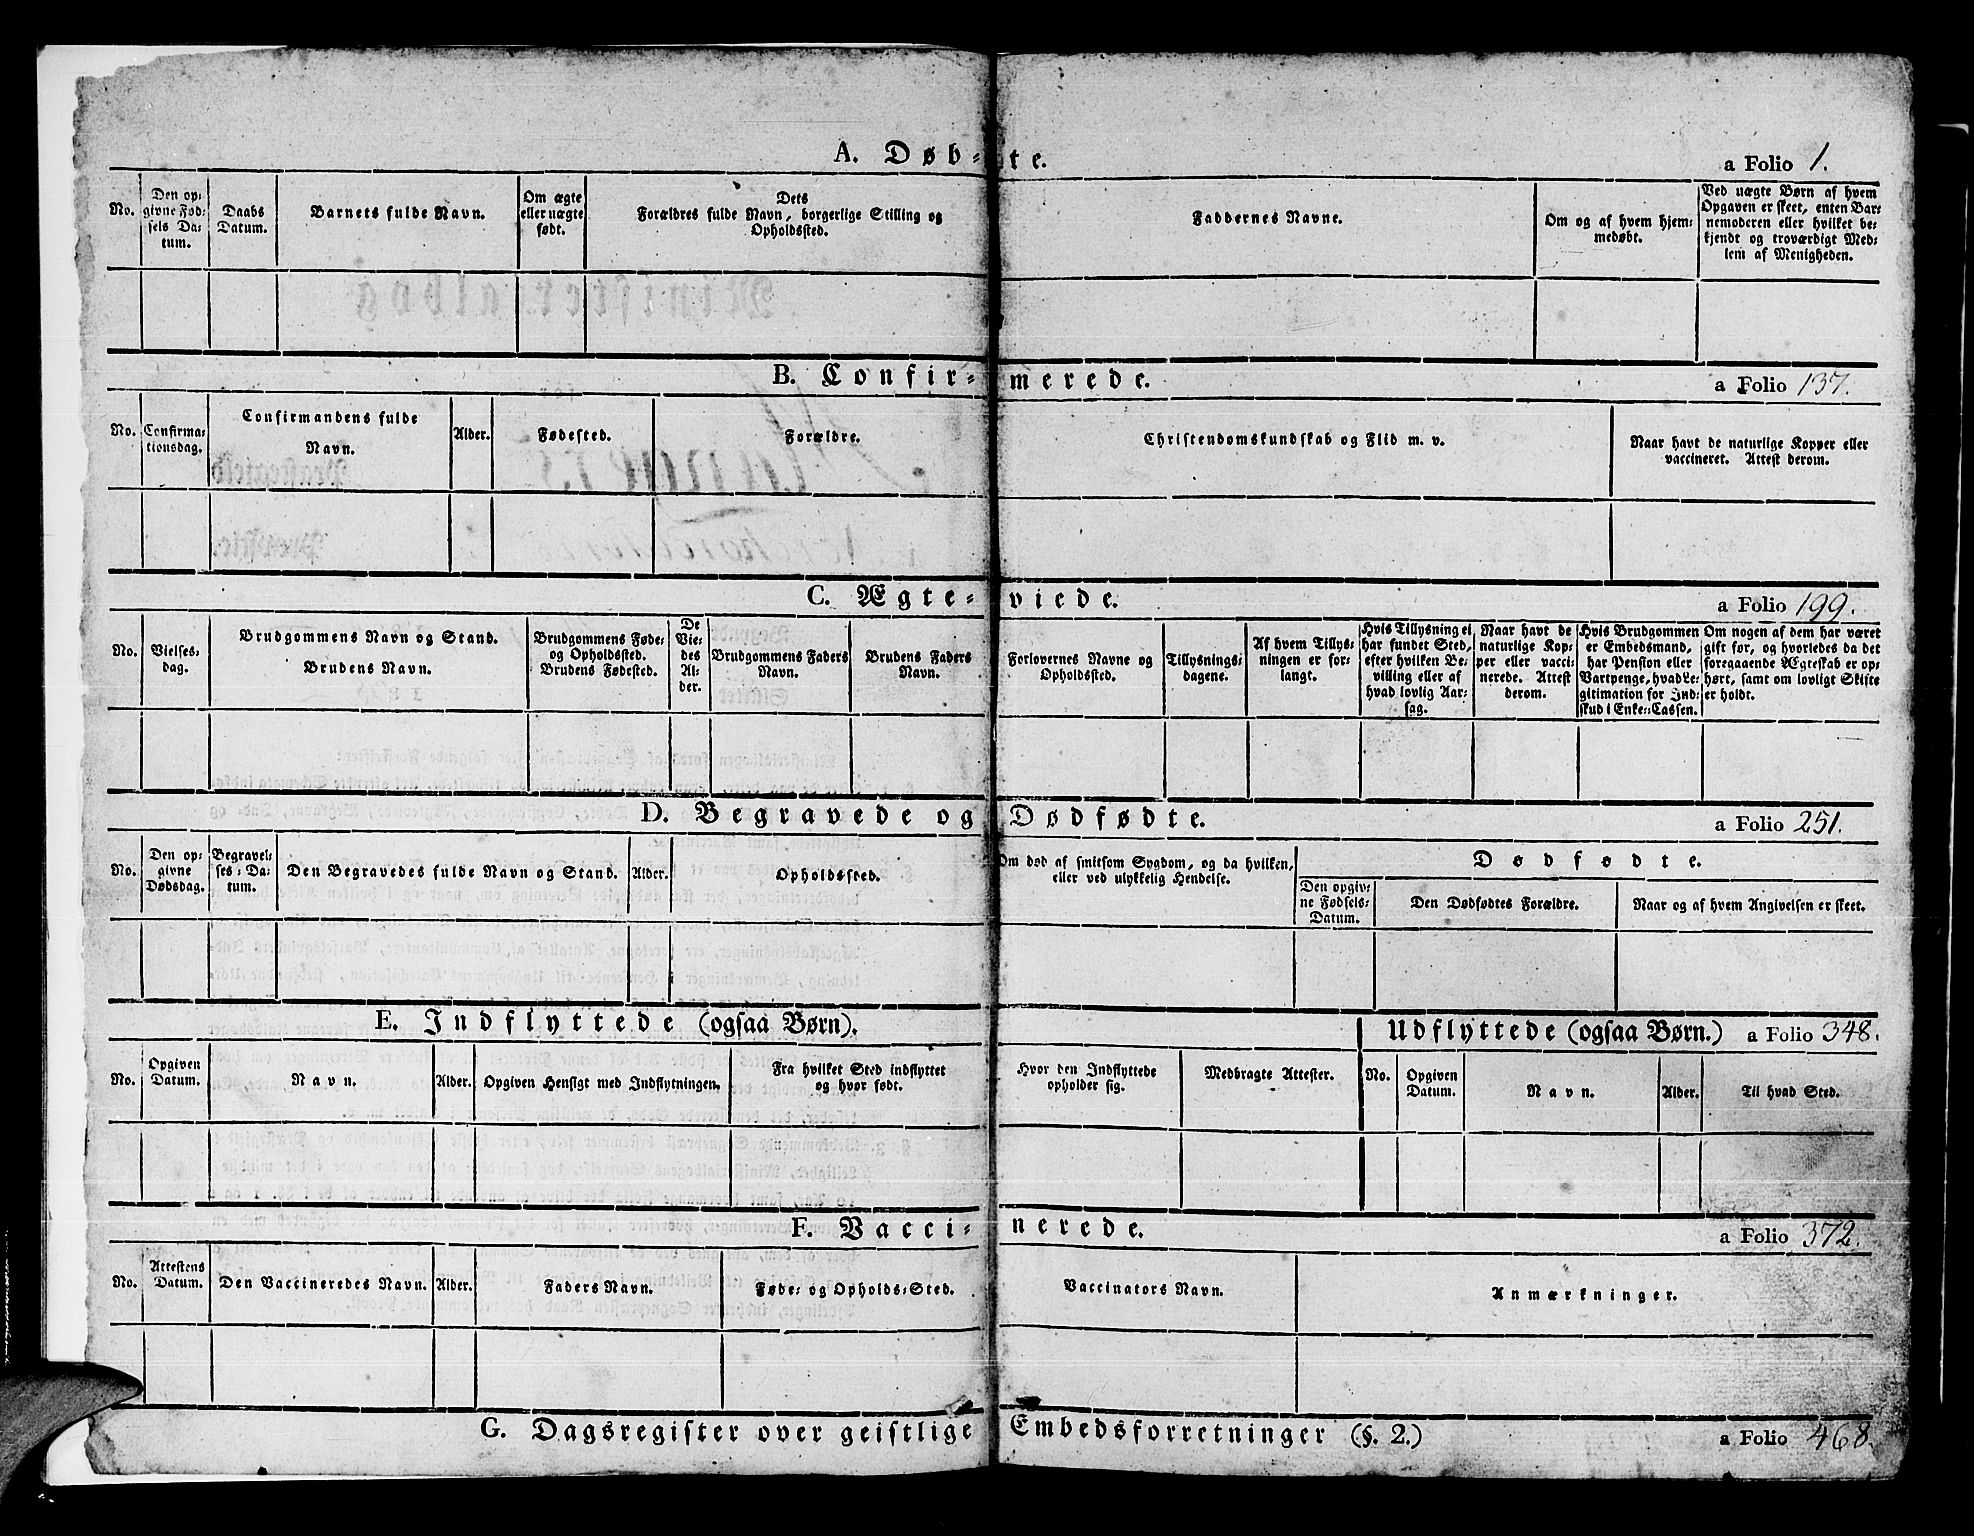 A. Døb-te. a Folio 1.
No.
Den op-
givne Fød-
sels Da-
tum.
Daabs
Datum.
Barnets fulde Navn.
Om ægte
eller uægte
født.
Dets
Forældres fulde Navn, borgerlige Stilling og
Opholdssted.
Faddernes Navne.
Om og af hvem hjem-
medøbt.
Ved uægte Børn af hvem
Opgaven er skeet, enten Bar-
nemoderen eller hvilket be-
kjendt og troværdigt Med-
lem af Menigheden.
B. Confir-merede. a Folio 137.
No.
Confirma-
tionsdag.
Confirmandens fulde
Navn.
Alder.
Fødested.
Forældre.
Christendomskundskab og Flid m. v.
Naar havt de naturlige Kopper eller
vaccineret. Attest derom.
C. Ægte-viede. a Folio 199.
No.
Vielses-
dag.
Brudgommens Navn og Stand.
Brudens Navn.
Brudgommens Føde-
og Opholdssted.
Brudens Fødested.
De
Vie-
des
Al-
der.
Brudgommens Faders
Navn.
Brudens Faders
Navn.
Forlovernes Navne og
Opholdssted.
Tillysnings-
dagene.
Af hvem Tillys-
ningen er for-
langt.
Hvis Tillysning ei
har fundet Sted,
efter hvilken Be-
villing eller af
hvad lovlig Aar-
sag.
Naar havt de
naturlige Kop-
per eller vacci-
nerede. Attest
derom.
Hvis Brudgommen
er Embedsmand,
har Pension eller
Vartpenge, hvad Le-
gitimation for Ind-
skud i Enke-Cassen.
Om nogen af dem har været
gift før, og hvorledes da det
foregaaende Ægteskab er op-
hørt, samt om lovligt Skifte
er holdt.
D. Begravede og Dødfødte. a Folio 251.
No.
Den op-
givne
Dødsdag.
Begravel-
ses-Da-
tum.
Den Begravedes fulde Navn og Stand.
Alder.
Opholdssted.
Om død af smitsom Sygdom, og da hvilken,
eller ved ulykkelig Hendelse.
Dødfødte.
Den opgiv-
ne Fødsels-
Datum.
Den Dødfødtes Forældre.
Naar og af hvem Angivelsen er skeet.
E. Indflyttede (ogsaa Børn). Udflyttede (ogsaa Børn.) a Folio 348.
No.
Opgiven
Datum.
Navn.
Alder.
Opgiven Hensigt med Indflytningen.
Fra hvilket Sted indflyttet
og hvor født.
Hvor den Indflyttede
opholder sig.
Medbragte Attester.
No.
Opgiven
Datum.
Navn.
Alder.
Til hvad Sted.
F. Vacci-nerede. a Folio 372.
No.
Attestens
Datum.
Den Vaccineredes Navn.
Alder.
Faders Navn.
Føde- og Opholds-Sted.
Vaccinators Navn.
Anmærkninger.
G. Dagsregister over geistlige Embedsforretninger (§. 2.) a Folio 468.